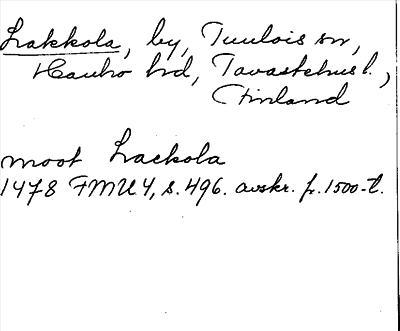 Lakkola, by, Tuulois sn,
Hauho hd, Tavastehus l.,
Finland
moot Lackola
1478 FMU 4, s. 496. avskr. fr. 1500-t.